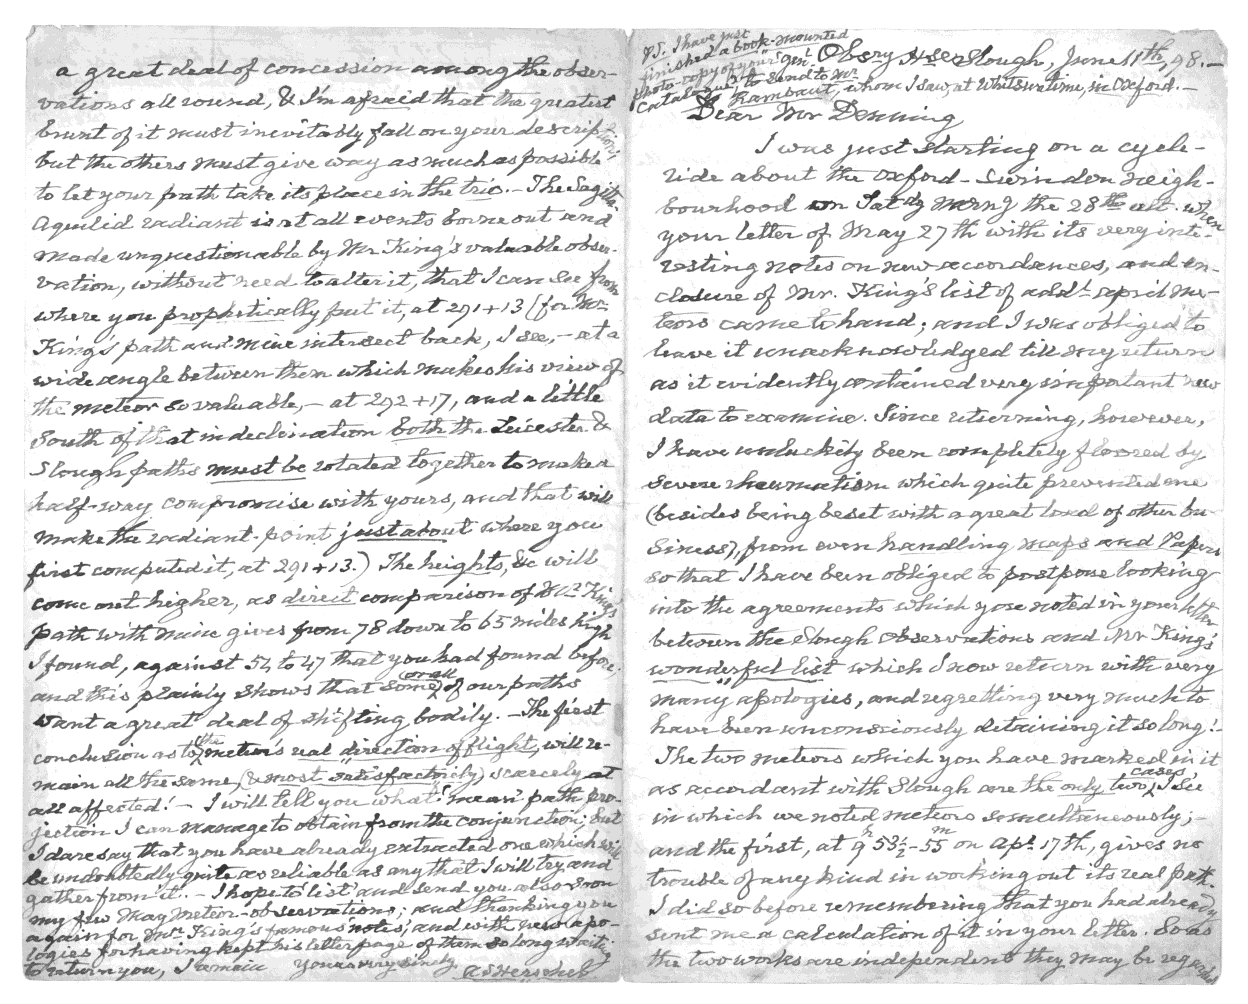 P.S. I have just
finished a book-mounted
photo-copy of your "Gen.l
Catalogue" to send to Mr
Rambaut, whom I saw, at Whitsuntime, in Oxford. —
Obsry Hse Slough, June 11th, 98. —
Dear Mr Denning
I was just starting on a cycle-
ride about the Oxford-Swindon neigh-
bourhood on Satdy morng the 28th ult. when
your letter of May 27th with its very inte-
resting notes on new accordances, and en-
closure of Mr. King's list of addl april me-
teors came to hand; and I was obliged to
leave it unacknowledged till my return
as it evidently contained very important new
data to examine. Since returning, however,
I have unluckily been completely floored by
severe rheumatism which quite prevented me
(besides being beset with a great load of other bu-
siness), from even handling maps and Papers
so that I have been obliged to postpone looking
into the agreements which you noted in your letter
between the Slough Observations and Mr King's
wonderful list which I now return with very
many apologies, and regretting very much to
have been unconsciously detaining it so long! —
The two meteors which you have marked in it
as accordant with Slough are the only two cases I see
in which we noted meteors simultaneously; —
and the first, at 9h 53½–55m on Apl. 17th, gives no
trouble of any kind in working out its real path.
I did so before remembering that you had already
sent me a calculation of it in your letter. So as
the two works are independent they may be regarded
a great deal of concession among the obser-
vations all round, & I'm afraid that the greatest
brunt of it must inevitably fall on your description,
but the others must give way as much as possible
to let your path take its place in the trio. — The Sagitta-
Aquilid radiant is at all events borne out and
made unquestionable by Mr. King's valuable obser-
vation, without need to alter it, that I can see from
where you prophetically put it, at 291+13 (for Mr.
King's path and mine intersect back, I see, — at a
wide angle between them which makes his view of
the meteor so valuable, — at 292+17, and a little
South of that in declination both the Leicester &
Slough paths must be rotated together to make a
half-way compromise with yours, and that will
make the radiant-point just about where you
first computed it, at 291+13.) The heights, &c will
come out higher, as direct comparison of Mr King's
path with mine gives from 78 down to 65 miles high
I found, against 54 to 47 that you had found before,
and this plainly shows that some (or all) of our paths
want a great deal of shifting, bodily. — The first
conclusion as to the meteor's real direction of flight, will re-
main all the same, (& most satisfactorily) scarcely at
all affected! — I will tell you what 'mean' path pro-
jection I can manage to obtain from the conjunction; but
I daresay that you have already extracted one which will
be undoubtedly quite as reliable as any that I will try and
gather from it. — I hope to list and send you also soon
my few May Meteor-observations; and thanking you
again for Mr. King's famous notes, and with new apo-
logies for having kept his letter page of them so long waiting
to return you, I remain Yours very sincerely A S Herschel